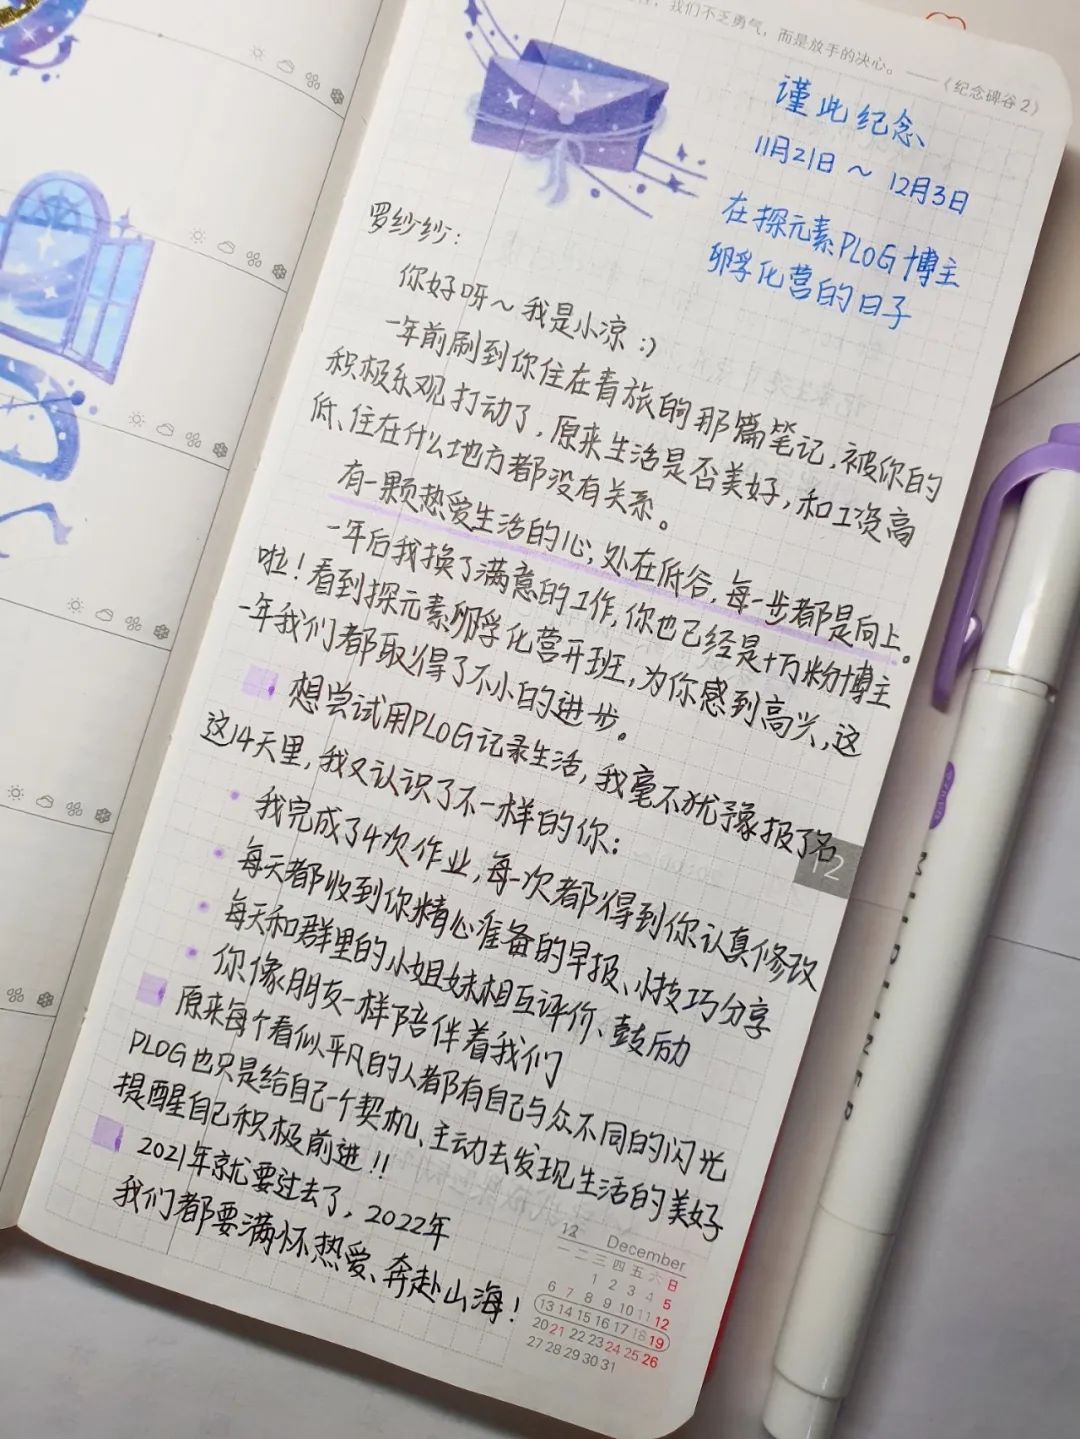 我们不乏勇气，而是放手的决心。——《纪念碑谷2》
谨此纪念
11月21日～12月3日
在探元素PLOG博主
孵化营的日子
罗纱纱：
你好呀～我是小凉:)
一年前刷到你住在青旅的那篇笔记，被你的
积极乐观打动了，原来生活是否美好，和工资高
低、住在什么地方都没有关系。
有一颗热爱生活的心，处在低谷，每一步都是向上。
一年后我换了满意的工作，你也已经是十万粉博主
啦！看到探元素孵化营开班，为你感到高兴，这
一年我们都取得了不小的进步。
想尝试用PLOG记录生活，我毫不犹豫报了名
这14天里，我又认识了不一样的你：
我完成了4次作业，每一次都得到你认真修改
每天都收到你精心准备的早报、小技巧分享
每天和群里的小姐妹相互评价、鼓励
你像朋友一样陪伴着我们
原来每个看似平凡的人都有自己与众不同的闪光
PLOG也只是给自己一个契机、主动去发现生活的美好
提醒自己积极前进!!
2021年就要过去了，2022年
我们都要满怀热爱、奔赴山海！
12
12 December
一 二 三 四 五 六 日
1 2 3 4 5
6 7 8 9 10 11 12
13 14 15 16 17 18 19
20 21 22 23 24 25 26
27 28 29 30 31
MILDLINER